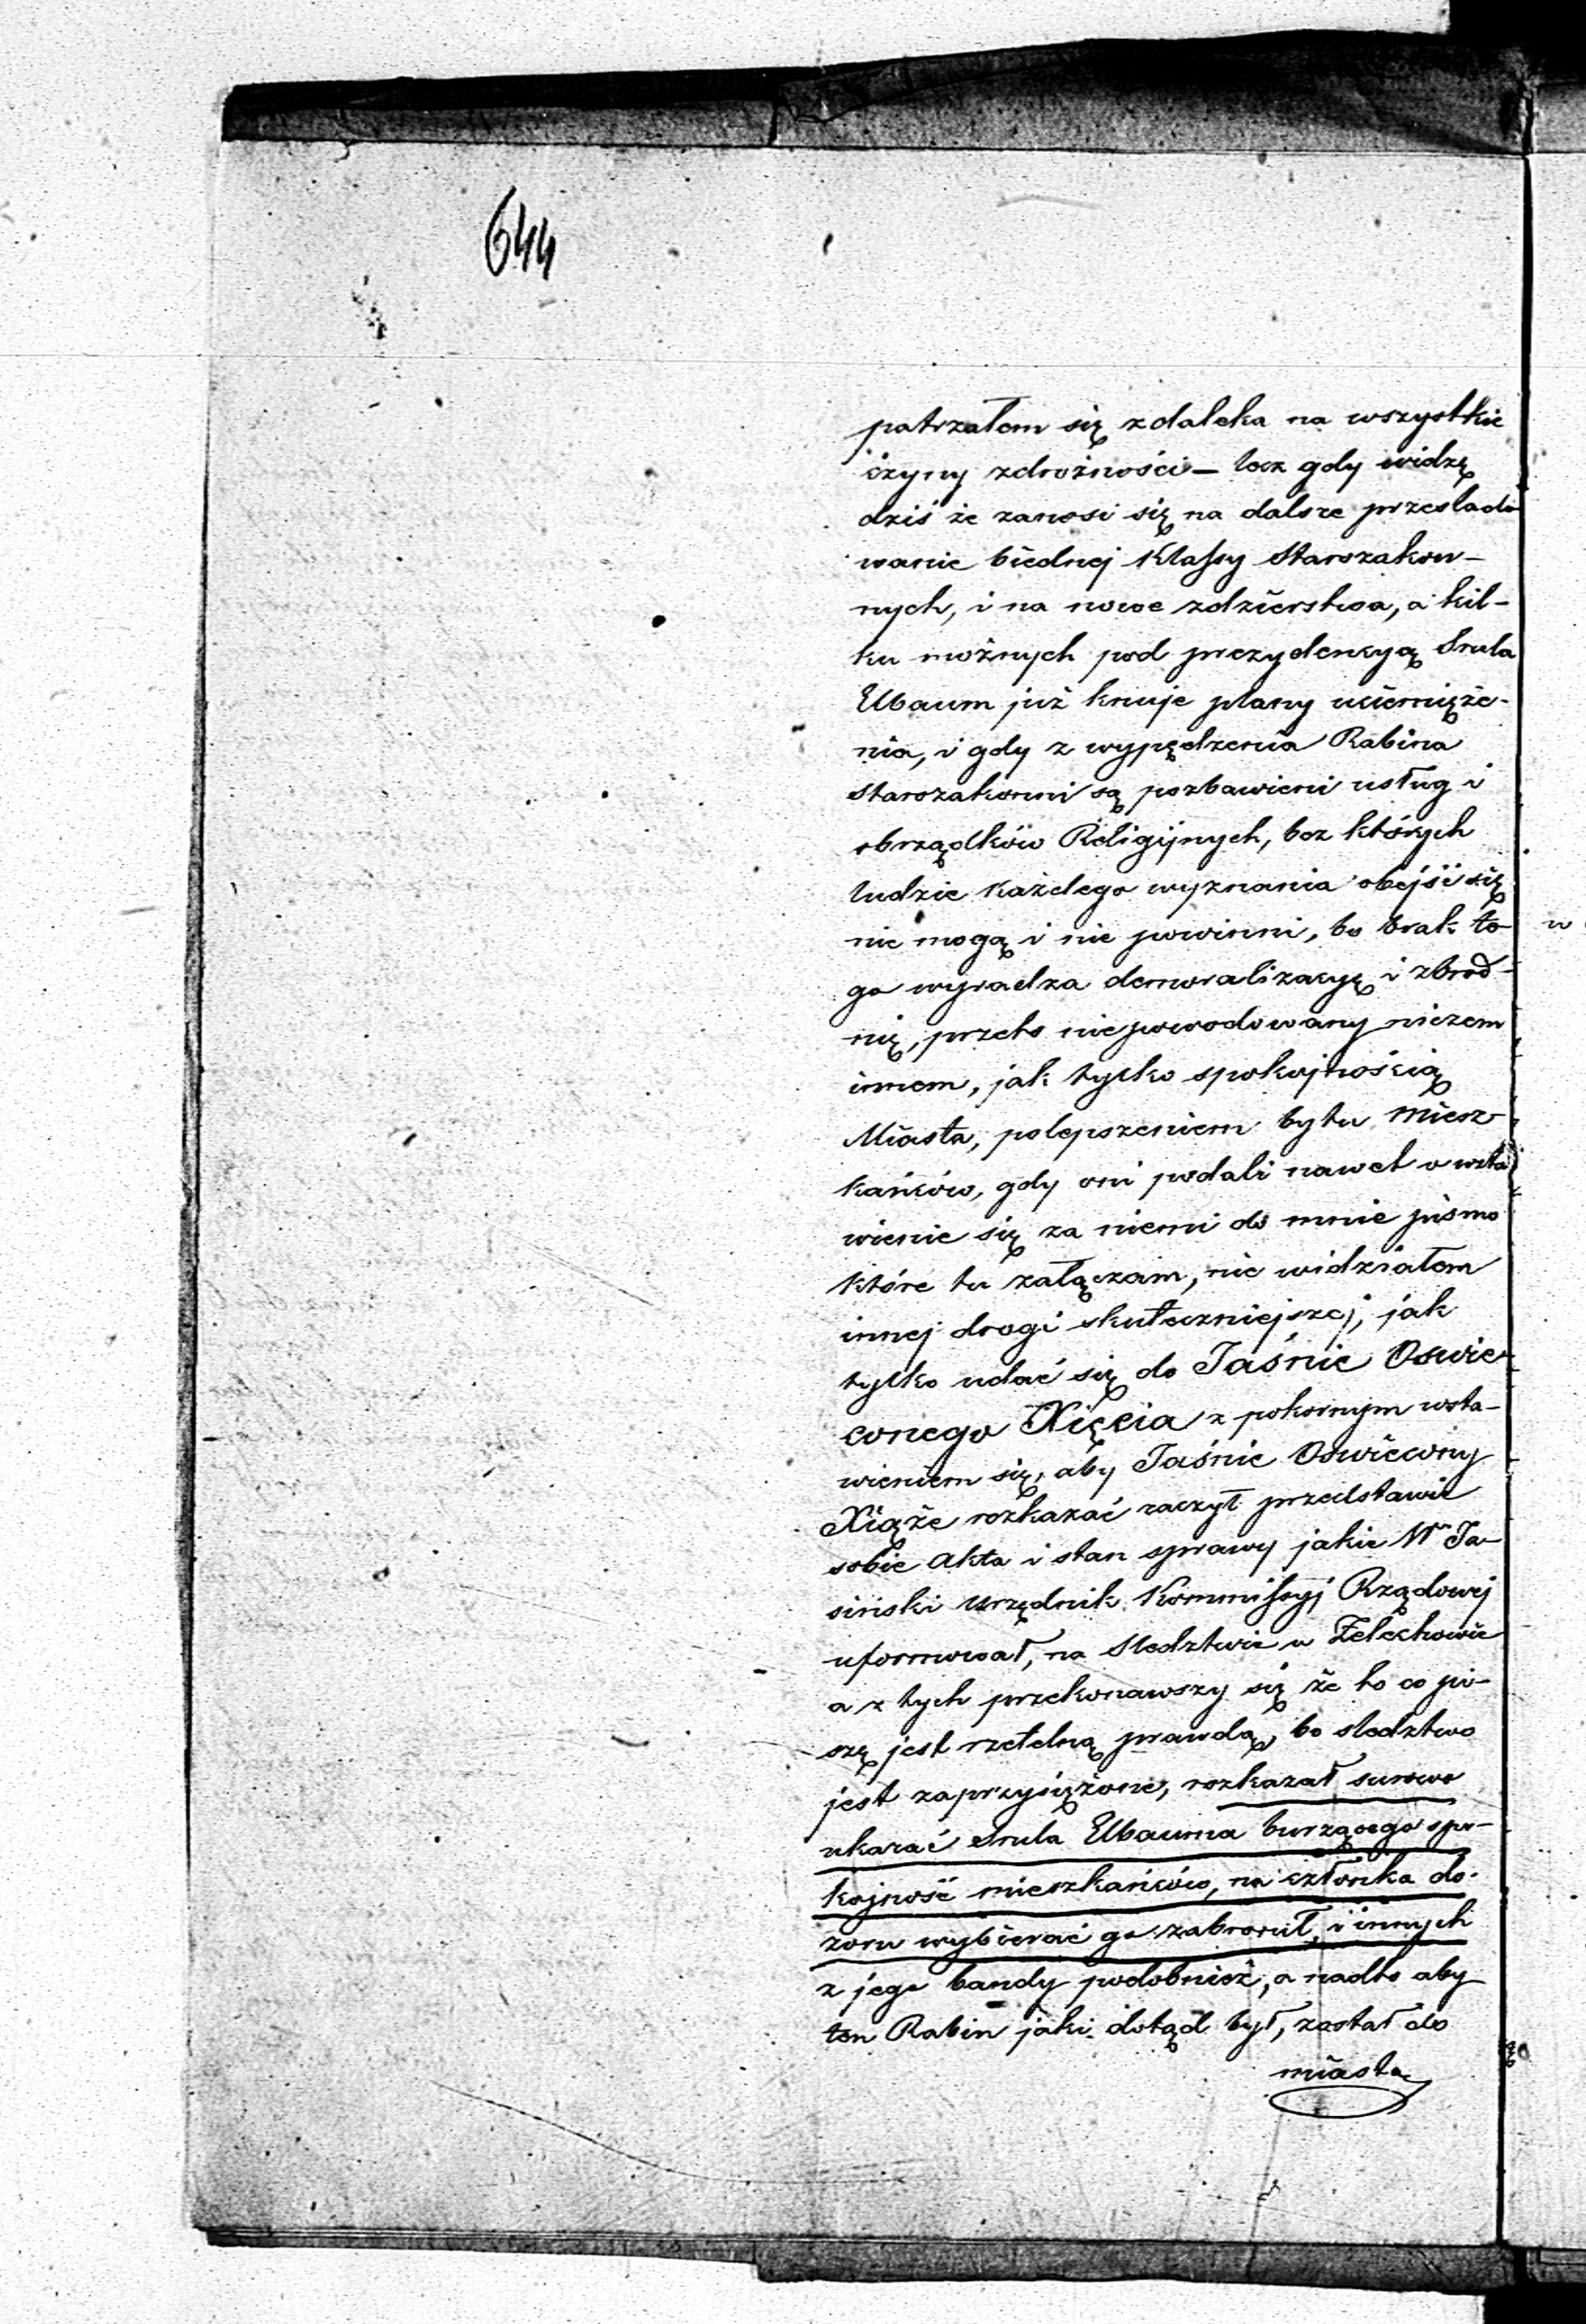 644
patrzałem się zdaleka na wszystkie
czyny zdrożności — lecz gdy widzę
dziś że zanosi się na dalsze przeslado
wanie biednej Klassy Starozakon-
nych, i na nowe zdzierstwa, a kil-
ku możnych pod prezydencyą Srula
Elbaum już knuje plany uciemięże-
nia, i gdy z wypędzenia Rabina
Starozakonni są pozbawieni usług i
obrządków Religijnych, bez których
ludzie każdego wyznania obejść się
nie mogą i nie powinni, bo brak te-
go wyradza demoralizacyę i zbrod-
nię, przeto nie powodowany niczem
innem, jak tylko spokojnością
Miasta, polepszeniem bytu miesz-
kańców, gdy oni podali nawet o wsta
wienie się za niemi do mnie pismo
które tu załączam, nie widziałem
innej drogi skuteczniejszej, jak
tylko udać się do Jaśnie Oswie-
conego Xięcia z pokornym wsta-
wieniem się, aby Jaśnie Oswiecony
Xiąże rozkazać raczył przedstawić
sobie Akta i stan sprawy jakie Wn Ja-
sinski urzędnik Kommissyj Rządowej
uformował, na Sledztwie w Zelechowie
a z tych przekonawszy się że to co pi-
szę jest rzetelną prawdą, bo sledztwo
jest zaprzysiężone, rozkazał surowo
ukarać Srula Elbauma burzącego spo-
kojność mieszkańców, na członka do-
zoru wybierać go zabronił, i innych
z jego bandy podobnież, a nadto aby
ten Rabin jaki dotąd był, został do
miasta